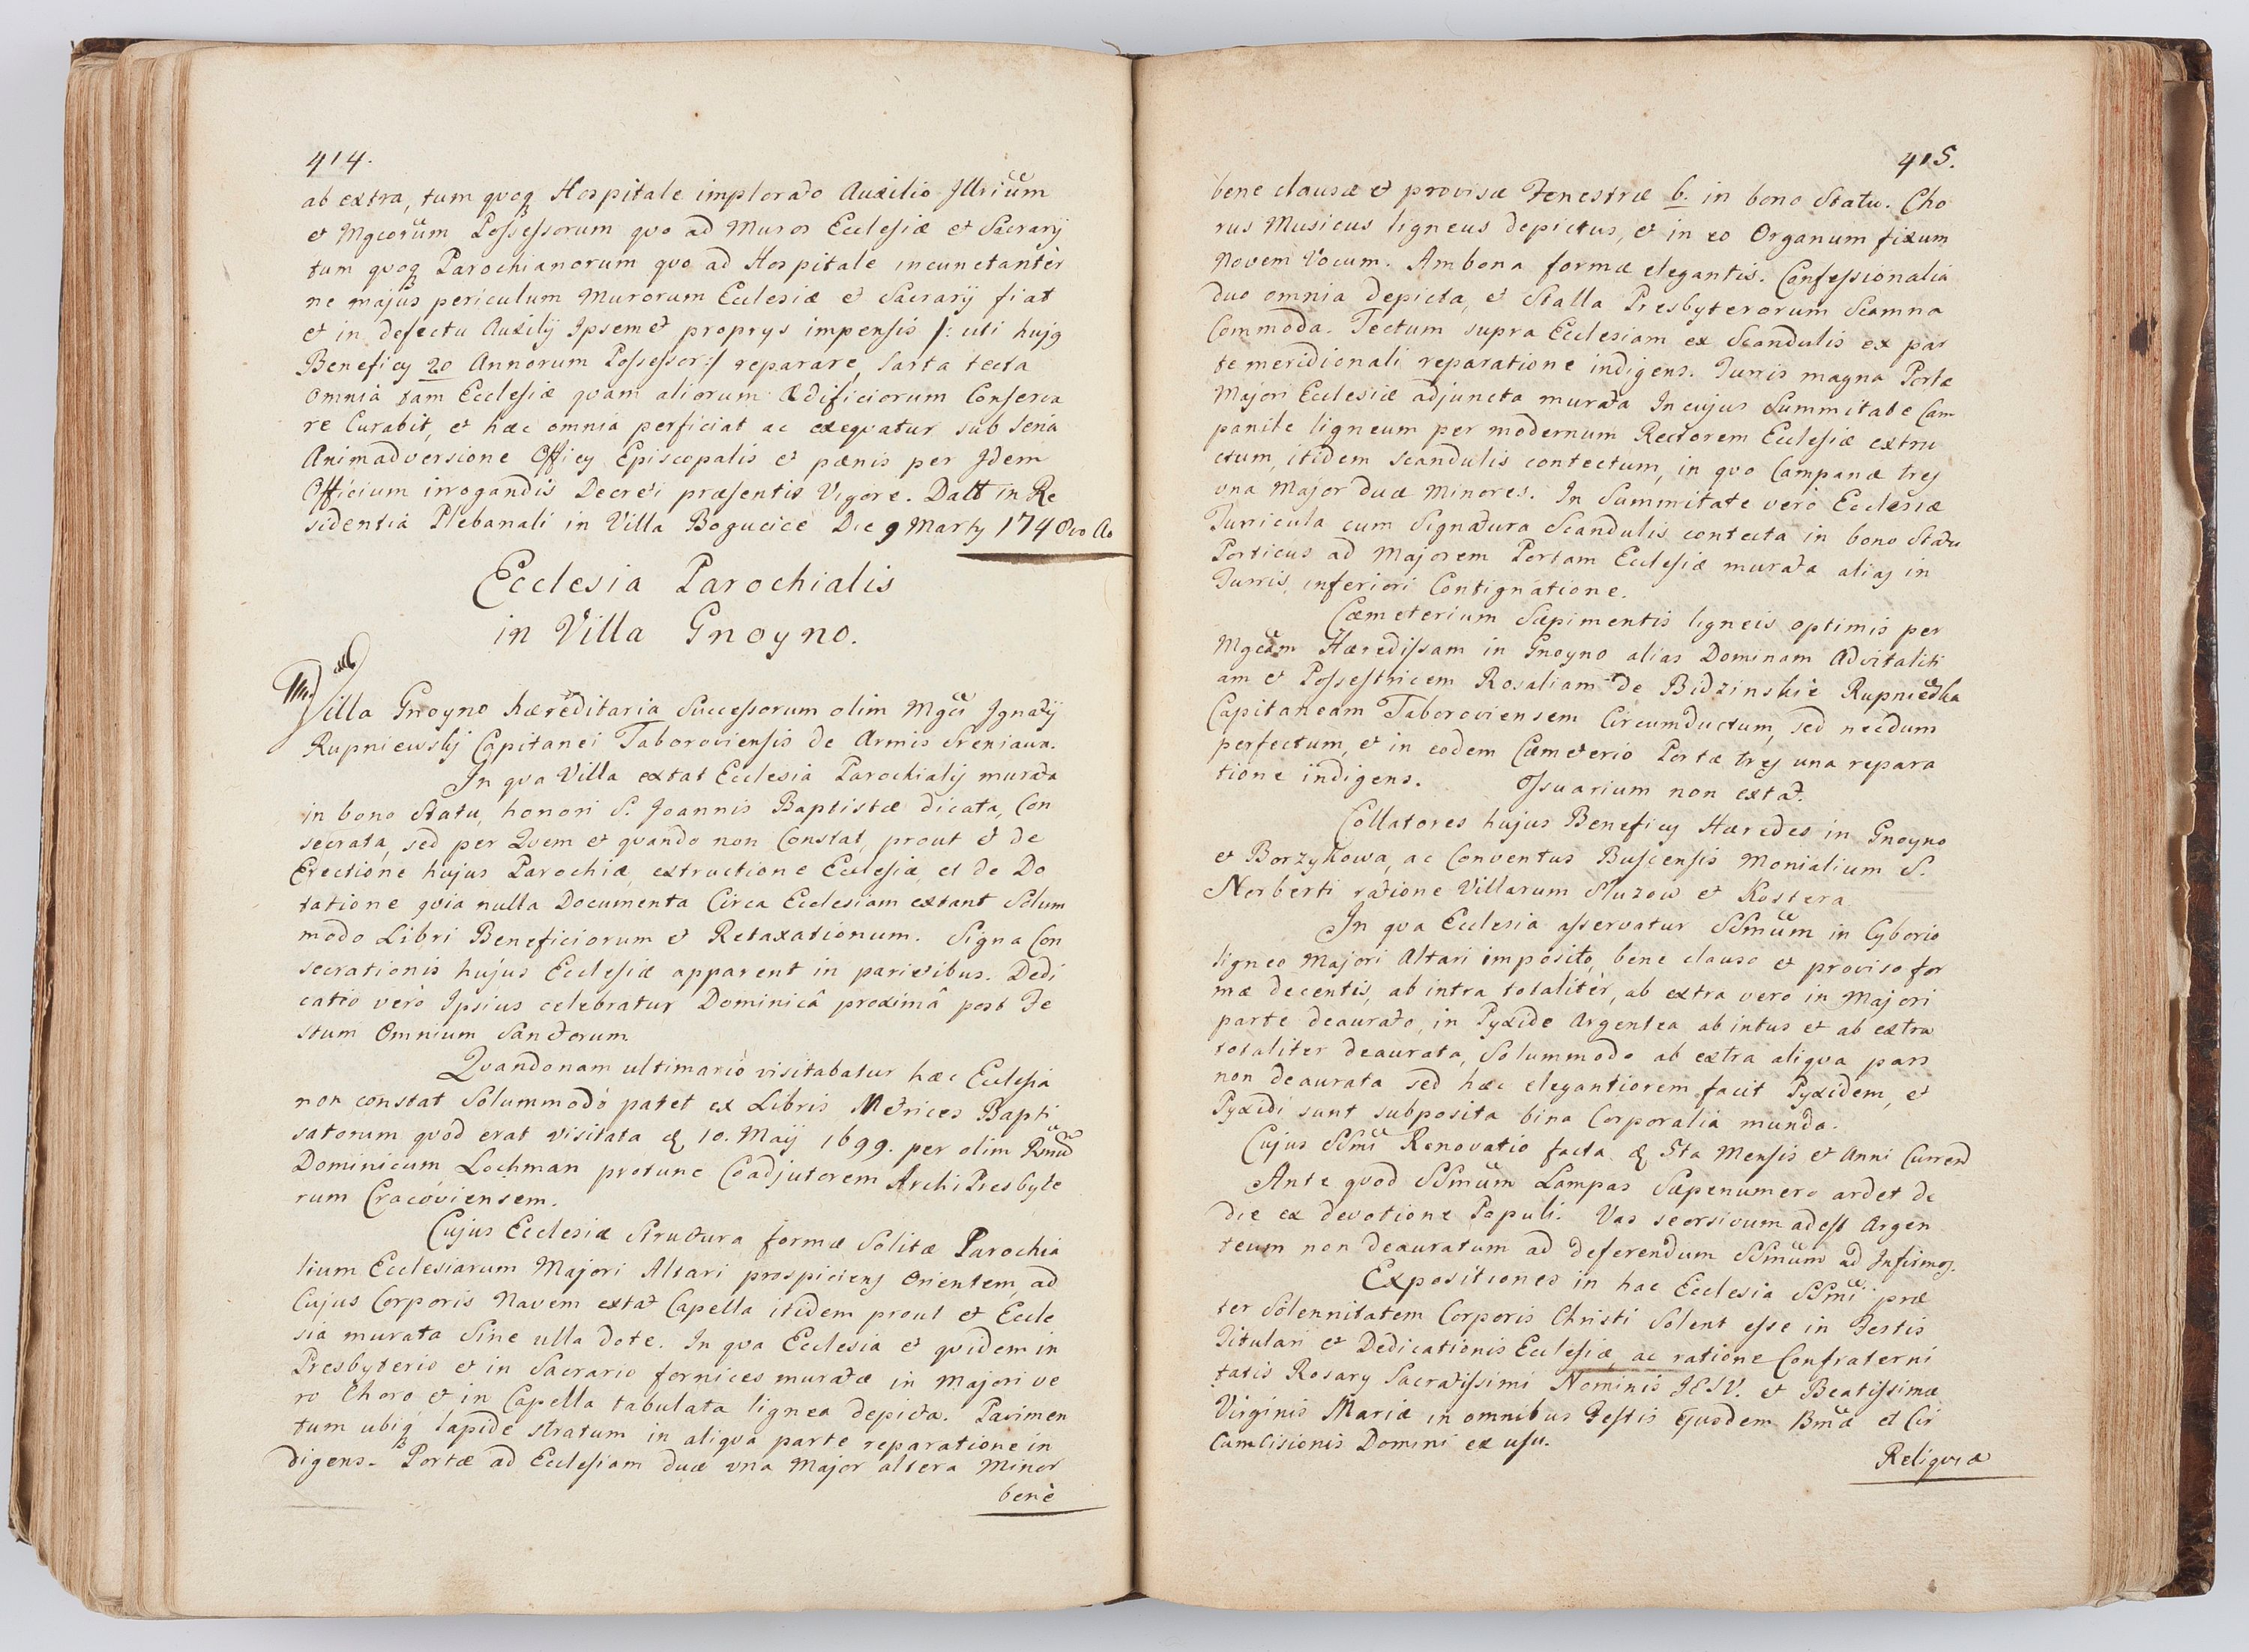 414.
ab extra, tum quoq Hospitale implorato Auxilio Illrium
et Mgcorum Possessorum quo ad Muros Ecclesiæ et Sacrarij
tum quoq Parochianorum quo ad Hospitale incunctantèr
ne majus periculum Murorum Ecclesiæ et Sacrarij fiat
et in defectu Auxilij Ipsemet proprys impensis /: uti hujq
Beneficy 20 Annorum Possessor :/ reparare, Sarta tecta
omnia tam Ecclesiæ quam aliorum Ædificiorum Conserva
re Curabit, et hæc omnia perficiat ac exequatur sub seria
Animadversione Officy Episcopalis et pænis per Idem
Officium irrogandis Decreti præsentis Vigore. Datt in Re
sidentia Plebanali in Villa Bogucice Die 9 Marty 1740vo Ao
Ecclesia Parochialis
in Villa Gnoyno.
Villa Gnoyno hæreditaria Successorum olim Mgci Ignatij
Rupniewskij Capitanei Taboroviensis de Armis Sreniawa.
In qua Villa extat Ecclesia Parochialis murata
in bono Statu, honori S. Joannis Baptistæ dicata, Con
secrata, sed per Quem et quando non Constat, prout et de
Erectione hujus Parochiæ, extructione Ecclesiæ, et de Do
tatione quia nulla Documenta Circa Ecclesiam extant Solum
modo Libri Beneficiorum et Retaxationum. Signa Con
secrationis hujus Ecclesiæ apparent in parietibus. Dedi
catio verò Ipsius celebratur Dominicâ proximâ post Fe
stum Omnium Sanctorum
Quandonam ultimariò visitabatur hæc Ecclesia
non constat Solummodò patet ex Libris Metrices Bapti
satorum quod erat visitata d 10. Maij 1699. per olim Rmud
Dominicum Lochman protunc Coadjutorem ArchiPresbyte
rum Cracoviensem.
Cujus Ecclesiæ Structura formæ Solitæ Parochia
lium Ecclesiarum Majori Altari prospiciens Orientem, ad
Cujus Corporis Navem extat Capella itidem prout et Eccle
sia murata Sine ulla dote. In qua Ecclesia et quidem in
Presbyterio et in Sacrario fornices muratæ in Majori ve
ro Choro et in Capella tabulata lignea depicta. Pavimen
tum ubiq lapide stratum in aliqua parte reparatione in
digens. Portæ ad Ecclesiam duæ una Major altera Minor
benè
415.
bene clausæ et provisæ Fenestræ 6. in bono Statu. Cho
rus Musicus ligneus depictus, et in eo Organum fixum
Novem Vocum. Ambona formæ elegantis. Confessionalia
duo omnia depicta, et Stalla Presbyterorum Scamna
Commoda. Tectum supra Ecclesiam ex Scandulis ex par
te meridionali reparatione indigens. Turris magna Portæ
Majori Ecclesiæ adjuncta murata In cujus Summitate Cam
panile ligneum per modernum Rectorem Ecclesiæ extru
ctum, itidem scandulis contectum, in quo Campanæ tres
una Major duæ Minores. In Summitate verò Ecclesiæ
Turricula cum Signatura Scandulis contecta in bono Statu
Porticus ad Majorem Portam Ecclesiæ murata alias in
Turris inferiori Contignatione.
Cæmeterium Sæpimentis ligneis optimis per
Mgcam Hæredissam in Gnoyno alias Dominam Advitaliti
am et Possestricem Rosaliam de Bidzinskie Rupniewska
Capitaneam Taboroviensem Circumductum, sed necdum
perfectum, et in eodem Cæmeterio Portæ tres una repara
tione indigens. Ossuarium non extat.
Collatores hujus Beneficij Hæredes in Gnoyno
et Borzykowa, ac Conventus Buscensis Monialium S.
Norberti ratione Villarum Sluzow et Kostera.
In qua Ecclesia asservatur SSmum in Cyborio
ligneo Majori Altari imposito, bene clauso et proviso for
mæ decentis, ab intra totalitèr, ab extra vero in Majori
parte deaurato, in Pyxide Argentea ab intus et ab extra
totaliter deaurata, Solummodo ab extra aliqua pars
non deaurata sed hæc elegantiorem facit Pyxidem, et
Pyxidi sunt subposita bina Corporalia munda.
Cujus SSmi Renovatio facta d 3tia Mensis et Anni Current
Ante quod SSmum Lampas Sæpenumero ardet de
die ex devotione Populi. Vas seorsivum adest Argen
teum non deauratum ad deferendum SSmum ad Infirmos.
Expositiones in hac Ecclesia SSmi præ
ter Solennitatem Corporis Christi Solent esse in Festis
Titulari et Dedicationis Ecclesiæ, ac ratione Confraterni
tatis Rosary Sacratissimi Nominis JESU. et Beatissimæ
Virginis Mariæ in omnibus Festis Ejusdem Bmæ et Cir
Cumcisionis Domini ex usu.
Reliquiæ